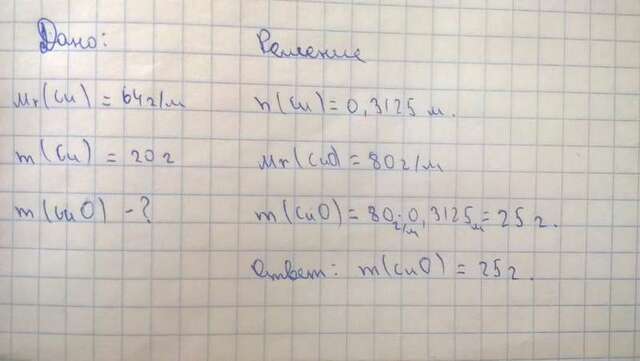 Дано:
Решение
Mr(Cu) = 64 г/м
n(Cu) = 0,3125 м.
m(Cu) = 20 г
Mr(CuO) = 80 г/м
m(CuO) - ?
m(CuO) = 80 г/м · 0,3125 м = 25 г.
Ответ: m(CuO) = 25 г.